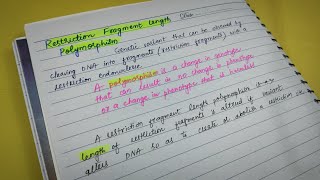 Restriction Fragment Length
Polymorphism
Genetic variant that can be assessed by
cleaving DNA into fragments (restriction fragments) with a
restriction endonuclease.
A polymorphism is a change in genotype
that can result in no change in phenotype
or a change in phenotype that is
A restriction fragment length polymorphism
length of restriction fragments is altered if variant
alters DNA so as to create or abolish a restriction